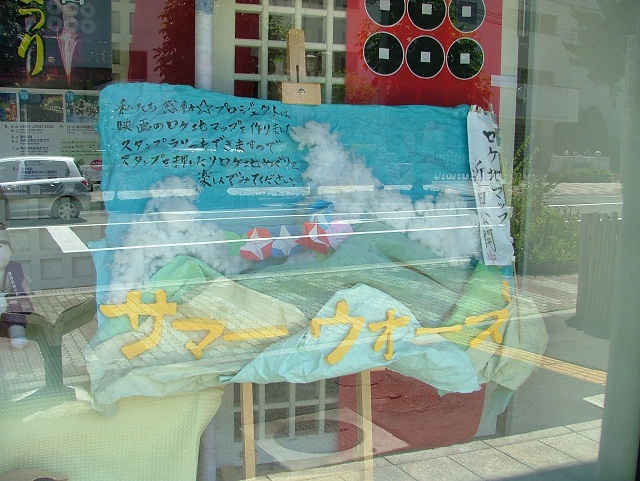 私たち感動☆プロジェクトは
映画のロケ地マップを作りました
スタンプラリーもできますので
スタンプを押したりロケ地めぐりを
楽しんでみてください。
ロケ地マップ
近日公開!!
サマーウォーズ